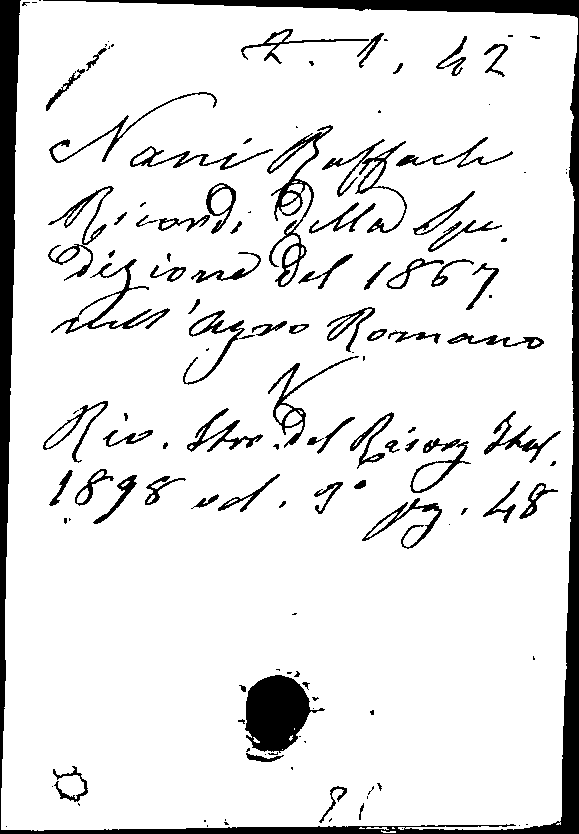 Z. 1, 42
Nani Raffaele
Ricordi della Spe
dizione del 1867
nell'Agro Romano
Riv. Stor. del Risorg Ital.
1898 vol. 3° pg. 48